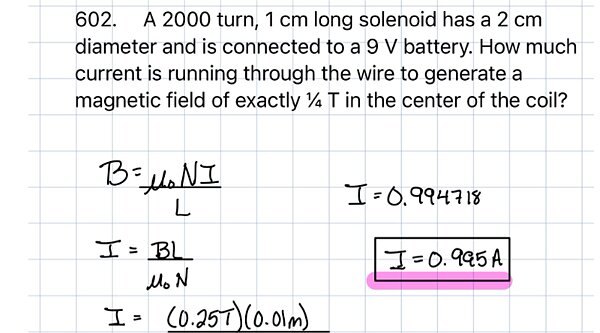 602. A 2000 turn, 1 cm long solenoid has a 2 cm
diameter and is connected to a 9 V battery. How much
current is running through the wire to generate a
magnetic field of exactly ¼ T in the center of the coil?
B = μ₀NI
L
I = BL
μ₀N
I = (0.25T)(0.01m)
I = 0.994718
I = 0.995 A